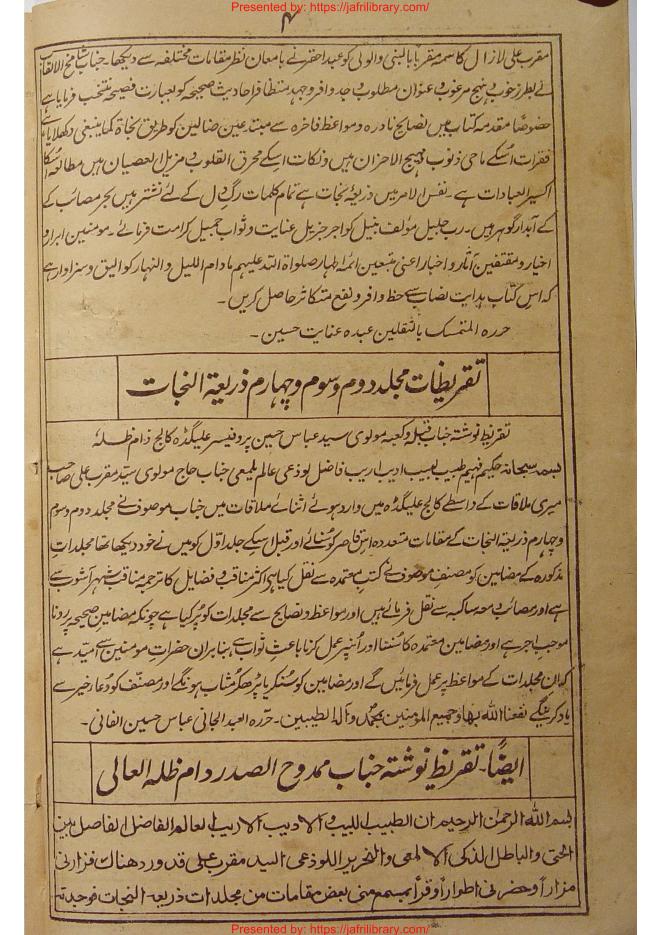 Presented by: https://jafrilibrary.com/
۴
مقرب علی لازال کاسمہ مقربا بالنبی والولی کو عبد احقر نے بامعان نظر مقامات مختلفہ سے دیکھا۔ جناب
نے بطرز خوب و نہج مرغوب و عنوان مطلوب و جد وافر و جہد متظافر احادیث صحیحہ کو بعبارت فصیحہ منتخب فرمایا ہے
خصوصًا مقدمہ کتاب میں نصایح نادرہ و مواعظ فاخرہ سے مبتدعین ضالین کو طریق نجاۃ کما ینبغی دکھلایا ہے
فقرات اسکے ماحی ذنوب و مہیج الاحزان ہیں و نکات اسکے محرق القلوب و مزیل العصیان ہیں مطالعہ اسکا
اکسیر العبادات ہے۔ نفس الامر میں ذریعۂ نجات ہے تمام کلمات رگ دل کے لئے نشتر ہیں بحر مصائب کے
کے آبدار گوہر ہیں۔ رب جلیل مؤلف نبیل کو اجر جزیل عنایت و ثواب جمیل کرامت فرمائے۔ مومنین ابرار و
اخیار و مقتفین آثار و اخبار اعنی متبعین ائمہ اطہار صلواۃ اللہ علیہم مادام اللیل والنہار کو الیق و سزاوار ہے
کہ اس کتاب ہدایت نصاب سے حظ وافر و نفع متکاثر حاصل کریں۔
حررہ المتمسک بالثقلین عبدہ عنایت حسین۔
تقریظات مجلد دوم و سوم و چہارم ذریعۃ النجات
تقریظ نوشتہ جناب قبلہ و کعبہ مولوی سید عباس حسین پروفیسر علیگڈہ کالج دام ظلہ
بسمہ سبحانہ حکیم فہیم طبیب لبیب ادیب اریب فاضل لوذعی عالم یلمعی جناب حاج مولوی سید مقرب علی صاحب
میری ملاقات کے واسطے کالج علیگڈہ میں وارد ہوئے اثنائے ملاقات میں جناب موصوف نے مجلد دوم و سوم
و چہارم ذریعۃ النجات کے مقامات متعددہ اس قاصر کو سنائے اور قبل اسکے جلد اول کو میں نے خود دیکھا تھا مجلدات
مذکورہ کے مضامین کو مصنف موصوف نے کتب معتمدہ سے نقل کیا ہے اکثر مناقب و فضایل کا ترجمہ مناقب شہر آشوب سے
ہے اور مصائب دمعہ ساکبہ سے نقل فرمائے ہیں اور مواعظ و نصایح سے مجلدات کو پُر کیا ہے چونکہ مضامین صحیحہ پر رونا
موجب اجر ہے اور مضامین معتمدہ کا سننا اور اُنپر عمل کرنا باعث ثواب ہے بنا بران حضرات مومنین سے امید ہے
کہ ان مجلدات کے مواعظ پر عمل فرمائیں گے اور مضامین کو سنکر یا پڑھکر مثاب ہونگے اور مصنف کو دعا خیر سے
یاد کرینگے نفعنا اللہ بہا و جمیع المؤمنین بمحمد و آلہ الطیبین۔ حررہ العبد الجانی عباس حسین الفانی۔
ایضًا۔ تقریظ نوشتہ جناب ممدوح الصدر دام ظلہ العالی
بسم اللہ الرحمن الرحیم ان الطبیب اللبیب والادیب الاریب العالم الفاضل الفاصل بین
الحق والباطل الذکی الالمعی والنحریر اللوذعی السید مقرب علی قد ورد هناک فزارنی
مزاراً و حضرنی اطواراً و قرأ بمسمع منی بعض مقامات من مجلدات ذریعۃ النجات فوجدته
Presented by: https://jafrilibrary.com/